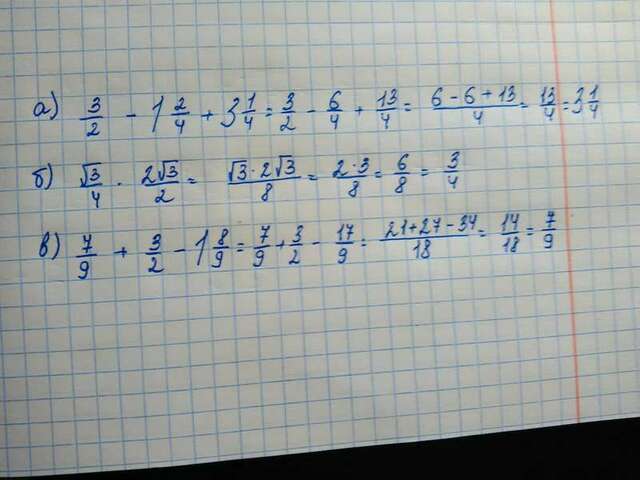 а) 3/2 - 1 2/4 + 3 1/4 = 3/2 - 6/4 + 13/4 = (6-6+13)/4 = 13/4 = 3 1/4
б) √3/4 · 2√3/2 = √3·2√3/8 = 2·3/8 = 6/8 = 3/4
в) 7/9 + 3/2 - 1 8/9 = 7/9 + 3/2 - 17/9 = (21+27-34)/18 = 14/18 = 7/9